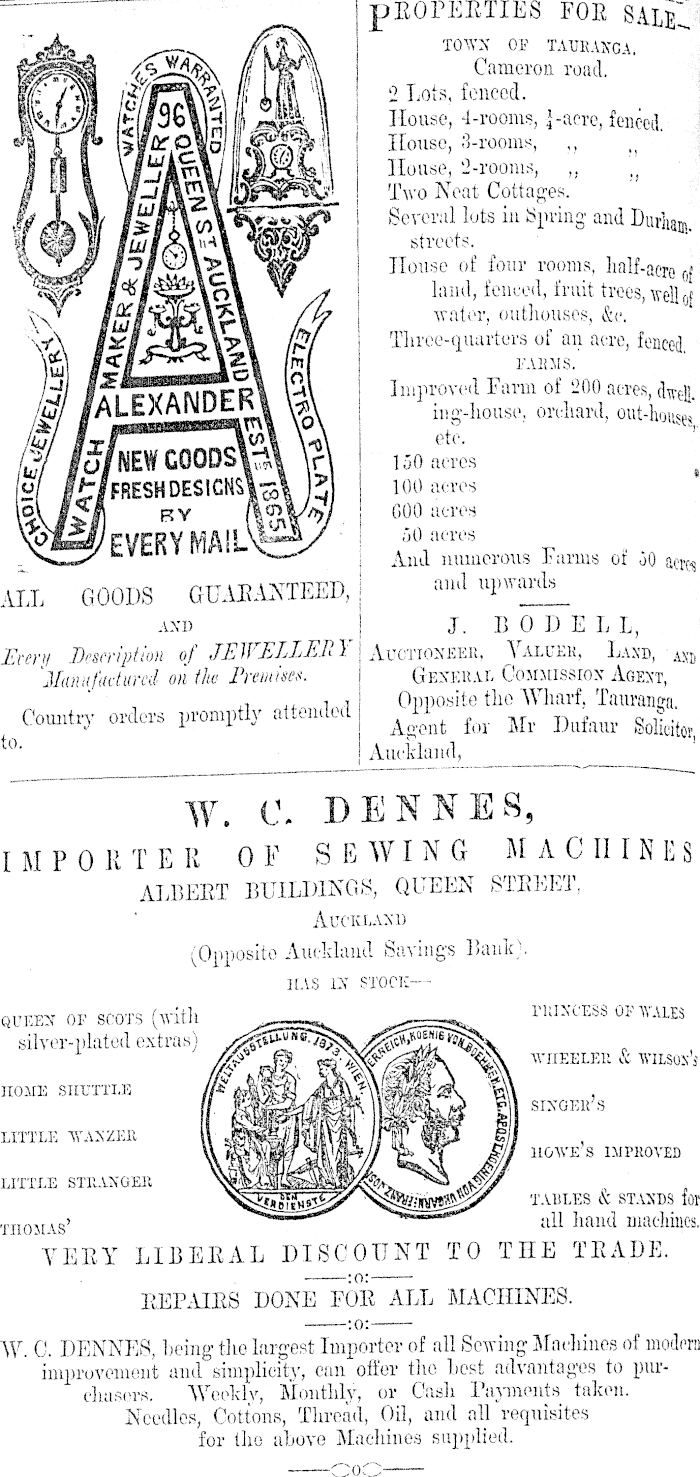 WATCHES WARRANTED
96
WATCH MAKER & JEWELLER
QUEEN ST AUCKLAND
ESTD 1865
ALEXANDER
CHOICE JEWELLERY
ELECTRO PLATE
NEW GOODS
FRESH DESIGNS
BY
EVERY MAIL
ALL GOODS GUARANTEED,
AND
Every Description of JEWELLERY
Manufactured on the Premises.
Country orders promptly attended
to.
PROPERTIES FOR SALE—
TOWN OF TAURANGA.
Cameron road.
2 Lots, fenced.
House, 4-rooms, ¼-acre, fenced.
House, 3-rooms, ,, ,,
House, 2-rooms, ,, ,,
Two Neat Cottages.
Several lots in Spring and Durham-
streets.
House of four rooms, half-acre of
land, fenced, fruit trees, well of
water, outhouses, &c.
Three-quarters of an acre, fenced.
FARMS.
Improved Farm of 200 acres, dwell-
ing-house, orchard, out-houses,
etc.
150 acres
100 acres
600 acres
50 acres
And numerous Farms of 50 acres
and upwards
J. BODELL,
AUCTIONEER, VALUER, LAND, AND
GENERAL COMMISSION AGENT,
Opposite the Wharf, Tauranga.
Agent for Mr Dufaur Solicitor,
Auckland,
W. C. DENNES,
IMPORTER OF SEWING MACHINES
ALBERT BUILDINGS, QUEEN STREET,
AUCKLAND
(Opposite Auckland Savings Bank).
HAS IN STOCK—
QUEEN OF SCOTS (with
silver-plated extras)
HOME SHUTTLE
LITTLE WANZER
LITTLE STRANGER
THOMAS'
WELTAUSSTELLUNG. 1873. WIEN
DEM
VERDIENSTE
FRANZ JOS
ERREICH, KOENIG VON BOEHMEN. ETC. APOST. KOENIG VON UNGARN
PRINCESS OF WALES
WHEELER & WILSON'S
SINGER'S
HOWE'S IMPROVED
TABLES & STANDS for
all hand machines.
VERY LIBERAL DISCOUNT TO THE TRADE.
——:o:——
REPAIRS DONE FOR ALL MACHINES.
——:o:——
W. C. DENNES, being the largest Importer of all Sewing Machines of modern
improvement and simplicity, can offer the best advantages to pur-
chasers. Weekly, Monthly, or Cash Payments taken.
Needles, Cottons, Thread, Oil, and all requisites
for the above Machines supplied.